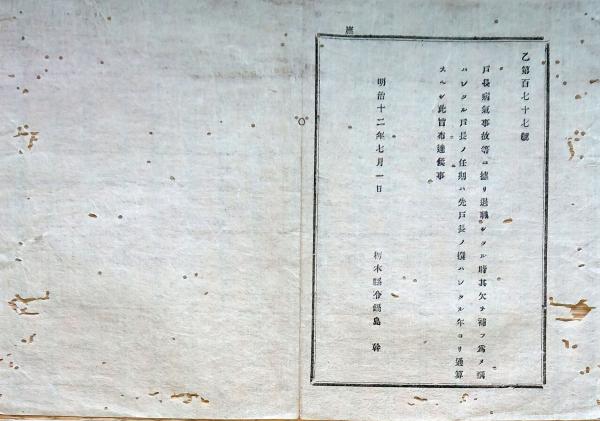 乙第百七十七號
戸長病氣事故等ニ據リ退職シタル時其欠ヲ補フ爲メ撰
ハレタル戸長ノ任期ハ先戸長ノ撰ハレタル年ヨリ通算
スヘシ此旨布達候事
明治十二年七月一日
栃木縣令鍋島 幹